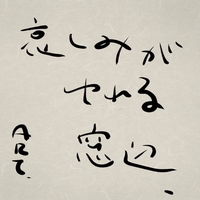 哀しみが
やれる
窓辺、
ART.